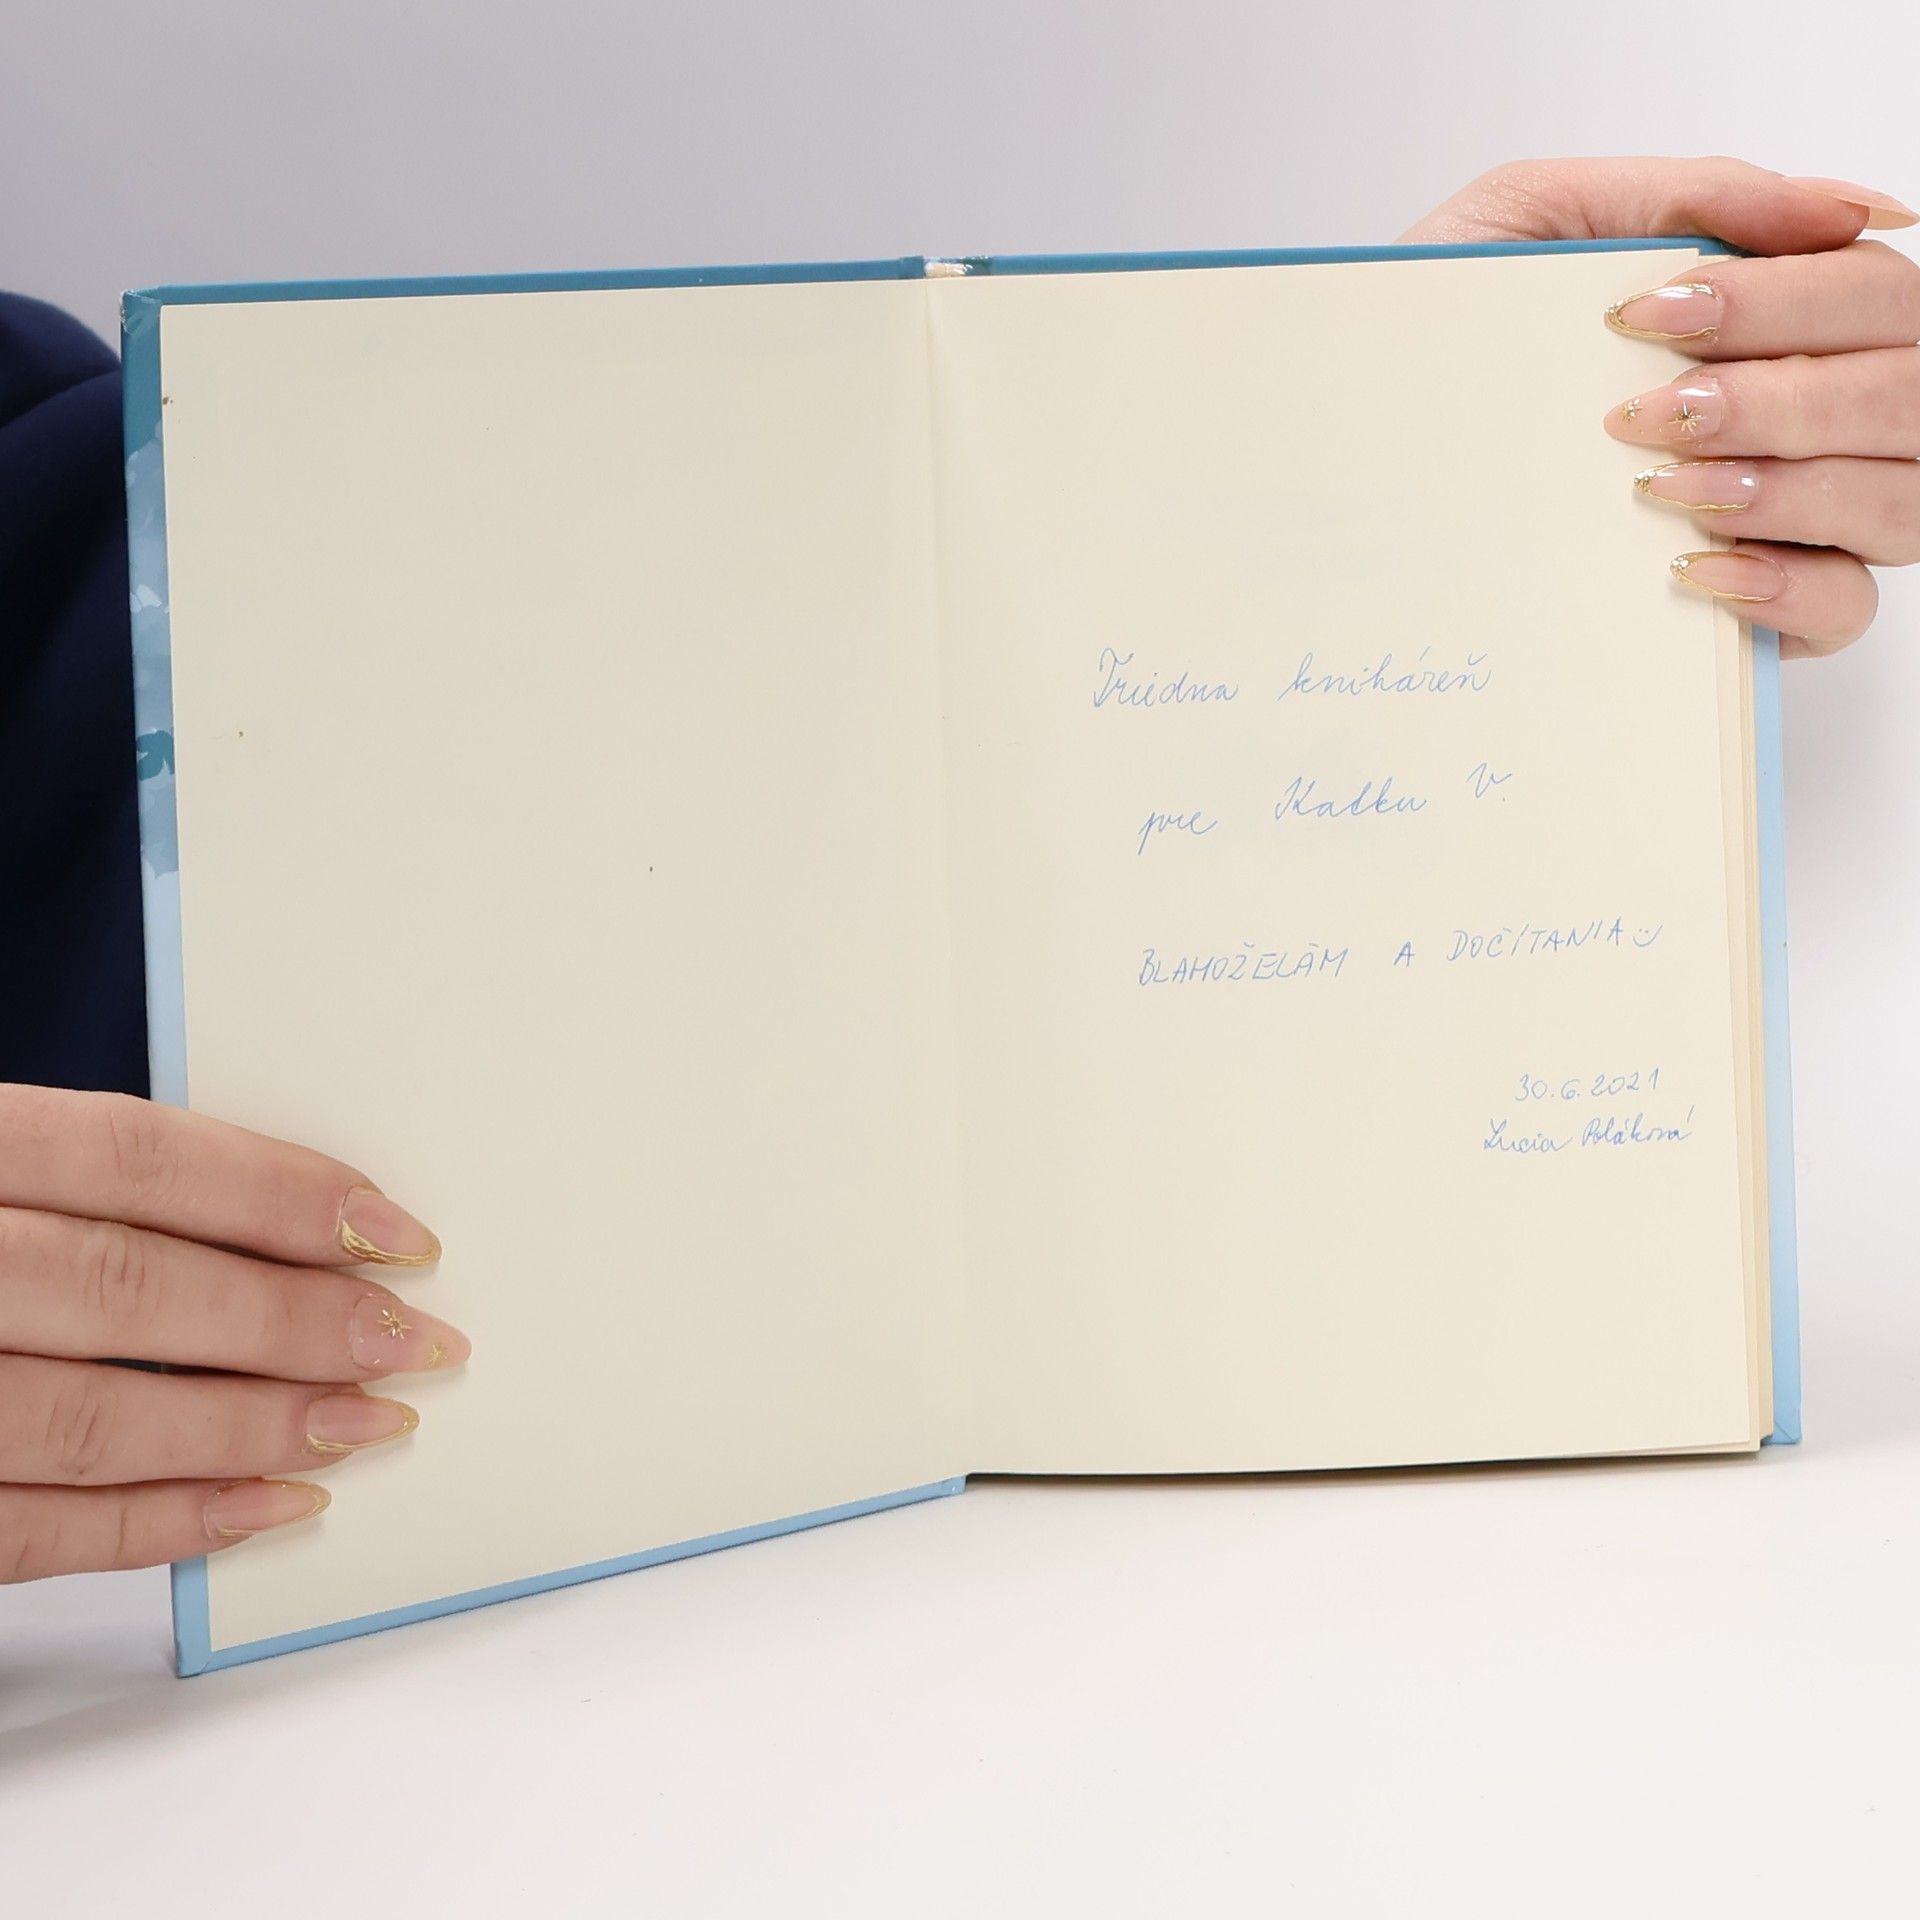 Triedna kniháreň
pre Katku V.
BLAHOŽELÁM A DOČÍTANIA
30.6.2021
Lucia Poláková